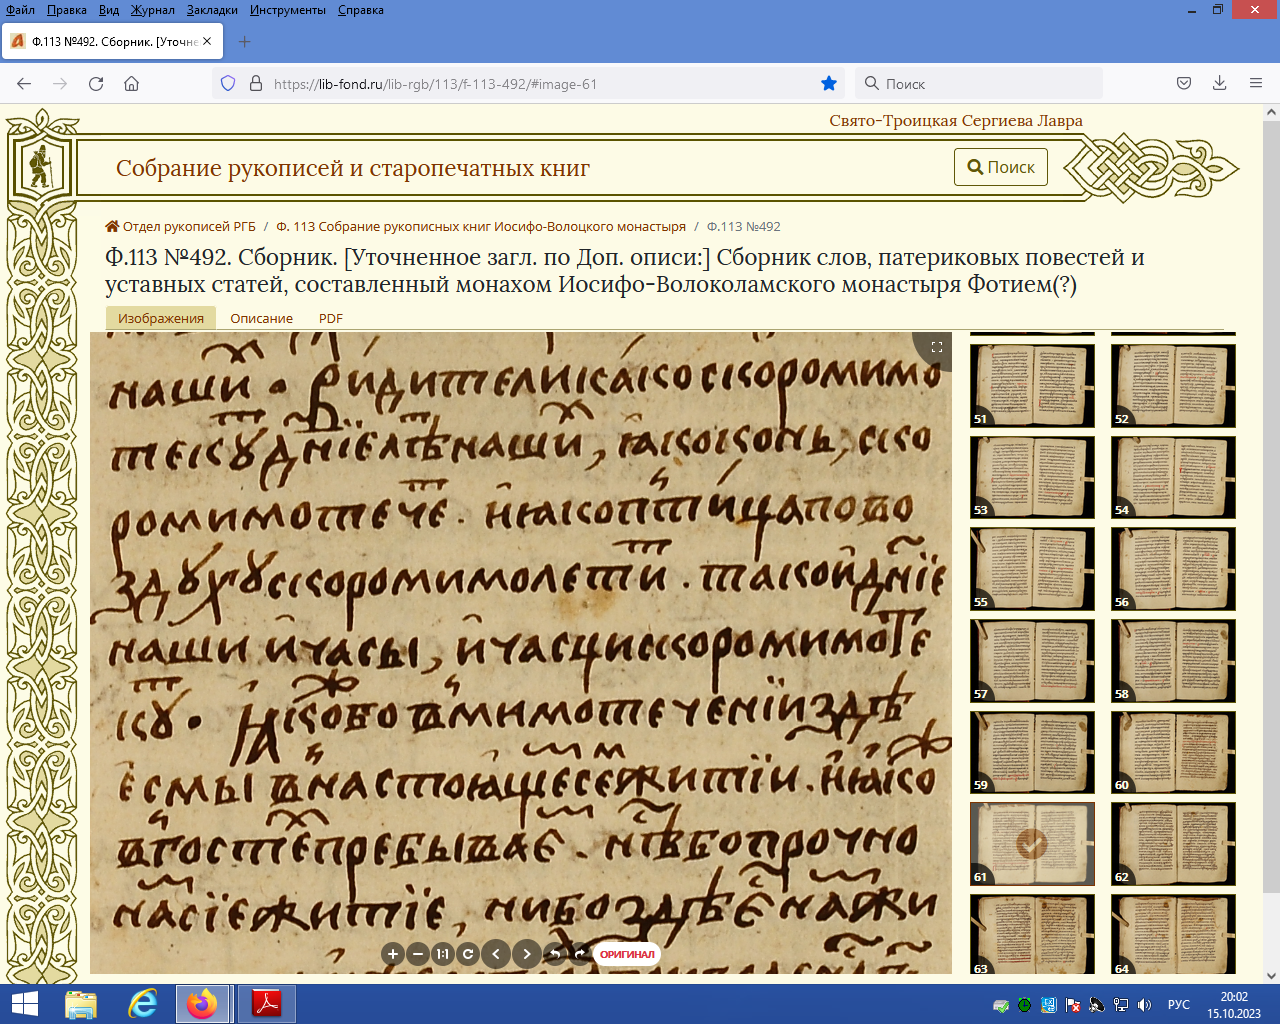 Файл Правка Вид Журнал Закладки Инструменты Справка
Ф.113 №492. Сборник. [Уточне
https://lib-fond.ru/lib-rgb/113/f-113-492/#image-61
Поиск
Свято-Троицкая Сергиева Лавра
Собрание рукописей и старопечатных книг
Поиск
Отдел рукописей РГБ / Ф. 113 Собрание рукописных книг Иосифо-Волоцкого монастыря / Ф.113 №492
Ф.113 №492. Сборник. [Уточненное загл. по Доп. описи:] Сборник слов, патериковых повестей и
уставных статей, составленный монахом Иосифо-Волоколамского монастыря Фотием(?)
Изображения Описание PDF
наши · Видите ли како скоро мимо
текꙋ дн҃їе лѣ наши, ꙗко конь, ско
ро мимотече . и ꙗко птица по во
здꙋхꙋ скоро мимолети . тако и дн҃їе
наши и часы, и часци скоро мимоте
кꙋ · Ꙗко бо в мимотеченїи здѣ
есмы в настоꙗщесе житїи . и ꙗко
в госте пребывае . нѣ бо прочно
на сїе житїе, ни бо здѣ е на жи
51 52
53 54
55 56
57 58
59 60
61 62
63 64
1:1 ОРИГИНАЛ
РУС 20:02
15.10.2023